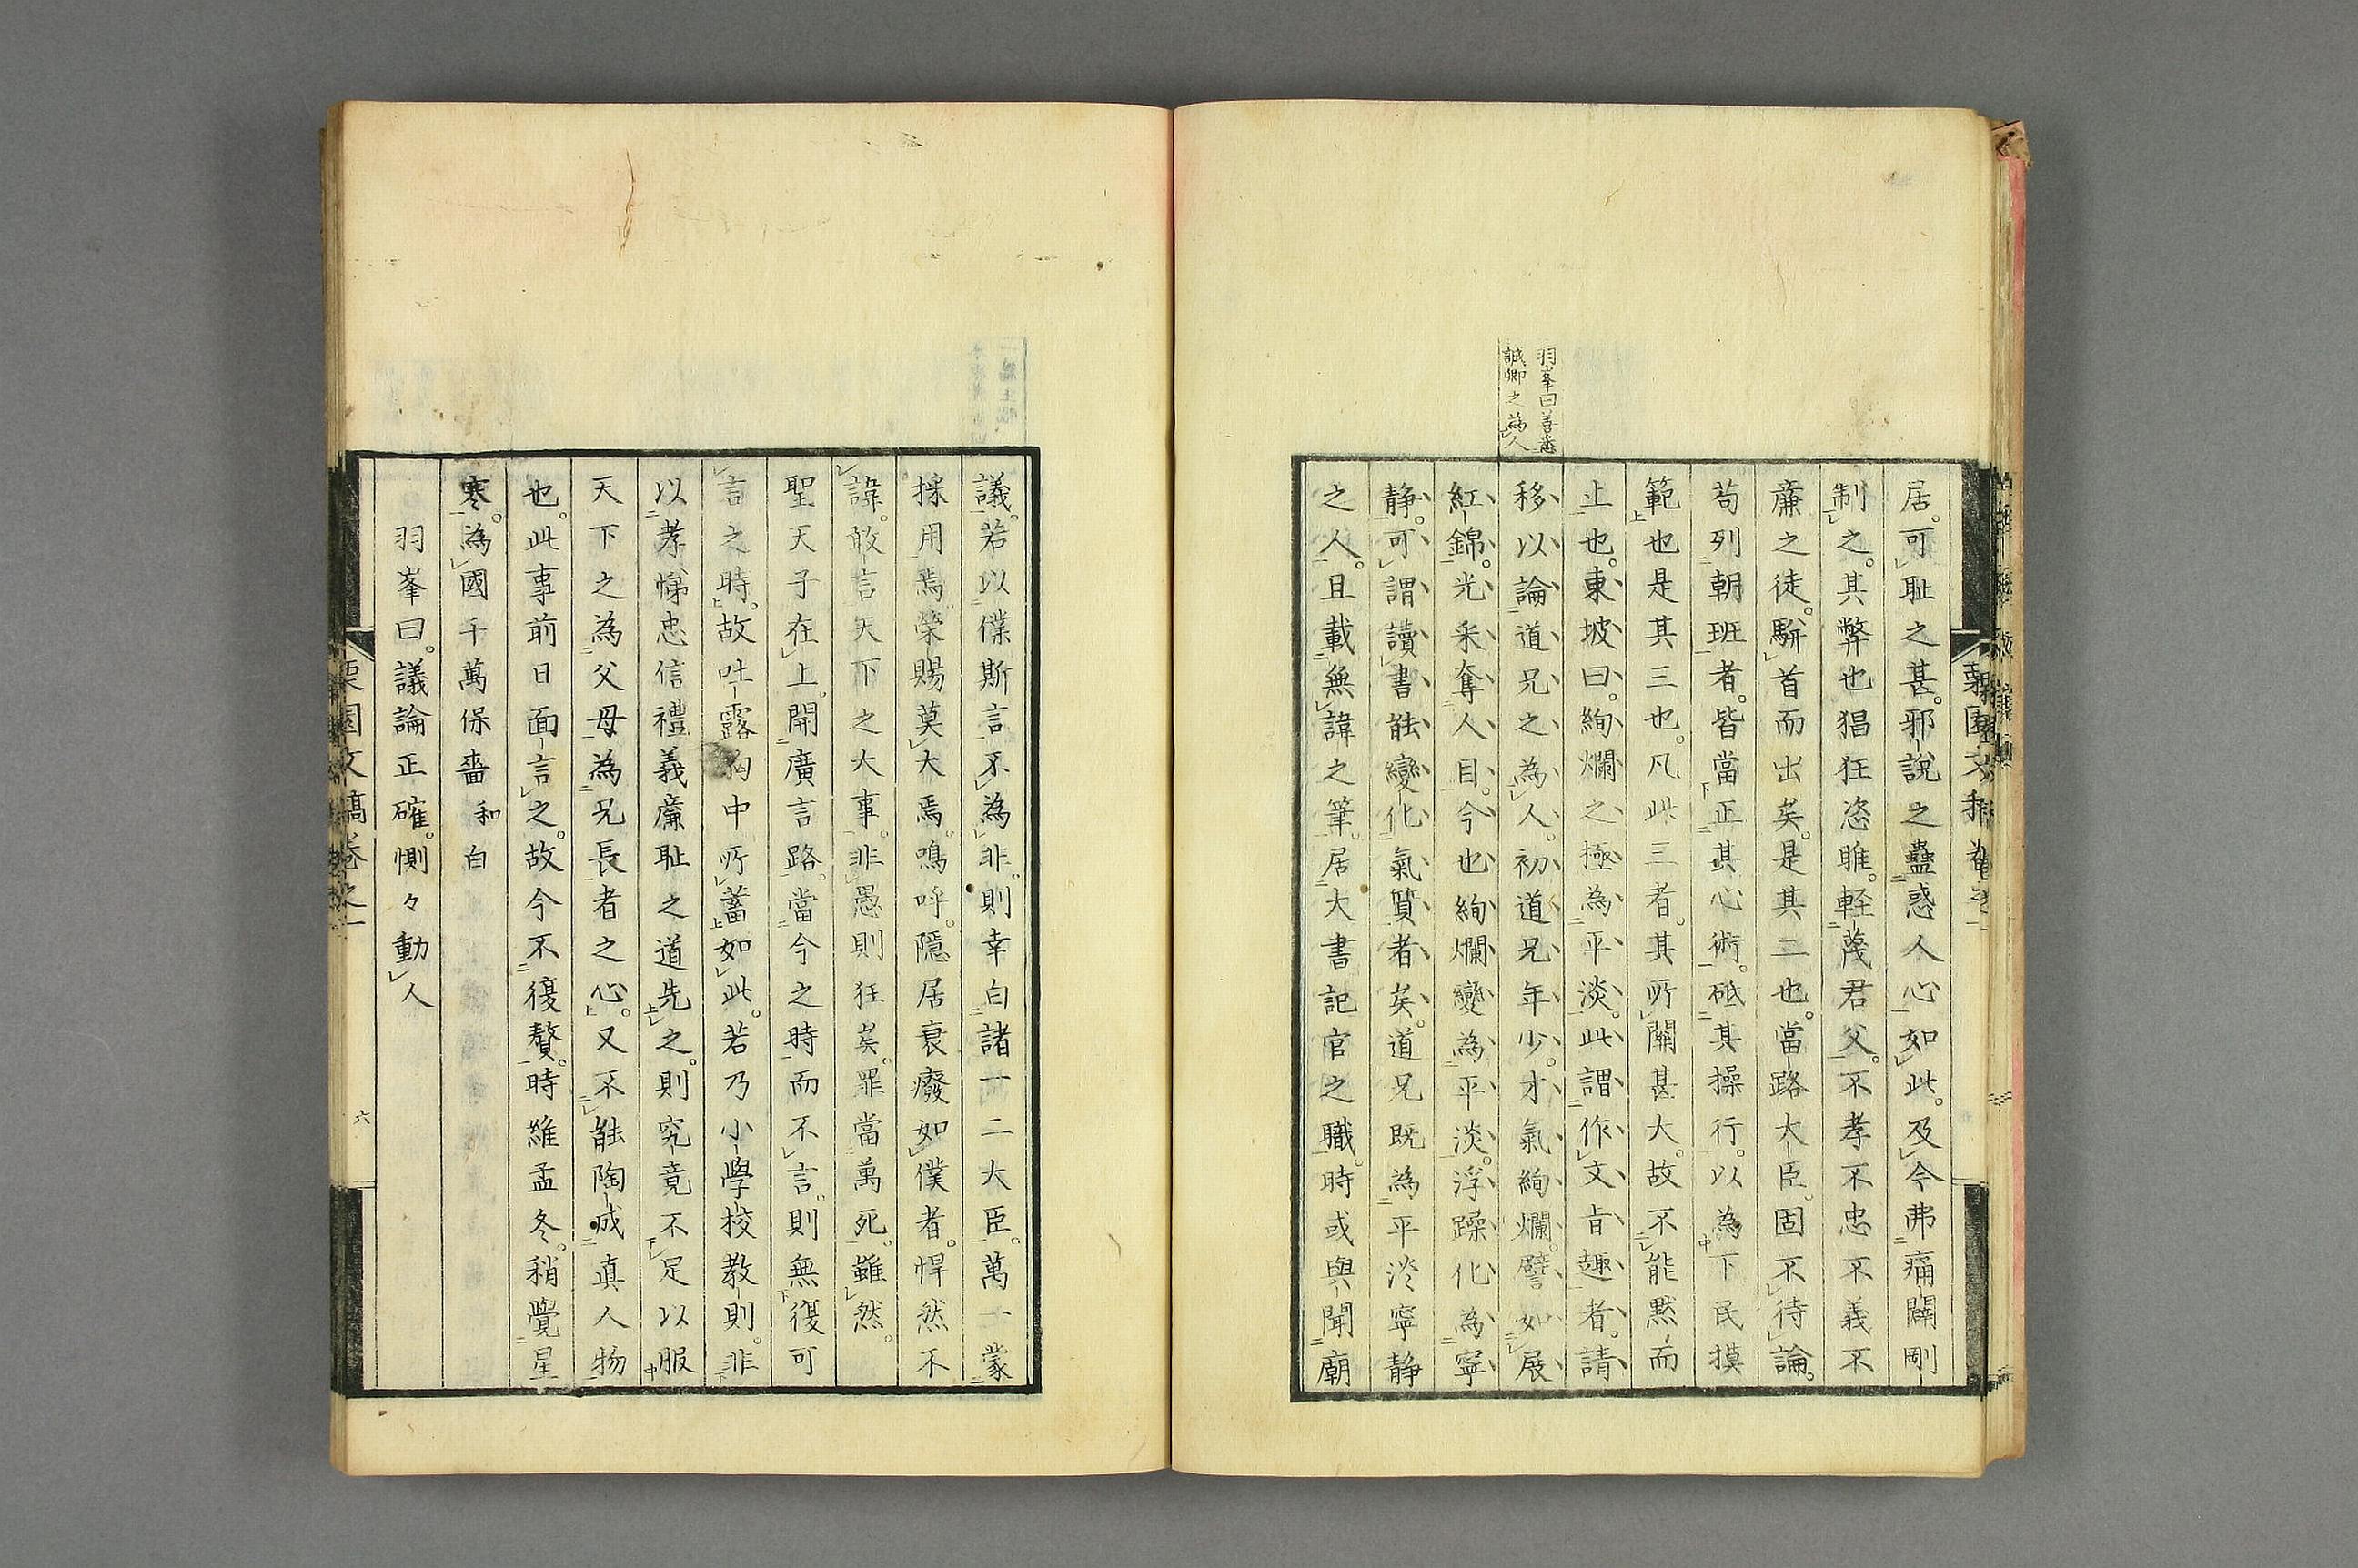 居。可耻之甚。邪説之蠱惑人心如此。及今弗痛闢剛
制之。其弊也猖狂恣雎。軽蔑君父。不孝不忠不義不
廉之徒。駢首而出矣。是其二也。當路大臣。固不待論。
苟列朝班者。皆當正其心術。砥其操行。以為下民摸
範也是其三也。凡此三者。其所關甚大。故不能黙而
止也。東坡曰。絢爛之極為平淡。此謂作文旨趣者。請
羽峯曰善悉
誠卿之為人
移以論道兄之為人。初道兄年少。才氣絢爛。譬如展
紅錦。光采奪人目。今也絢爛變為平淡。浮躁化為寧
静。可謂讀書能變化氣質者矣。道兄既為平淡寧静
之人。且載無諱之筆。居大書記官之職。時或與聞廟
栗園文稿巻之一
議。若以僕斯言不為非。則幸白諸一二大臣。萬一蒙
採用焉。榮賜莫大焉。嗚呼。隠居衰癈如僕者。悍然不
諱。敢言天下之大事。非愚則狂矣。罪當萬死。雖然。
聖天子在上。開廣言路。當今之時而不言。則無復可
言之時。故吐露胸中所蓄如此。若乃小學校教則。非
以孝悌忠信禮義廉耻之道先之。則究竟不足以服
天下之為父母為兄長者之心。又不能陶成真人物
也。此事前日面言之。故今不復贅。時維孟冬。稍覺星
寒。為國千萬保嗇和白
羽峯曰。議論正確。惻々動人
栗園文稿巻之一
六